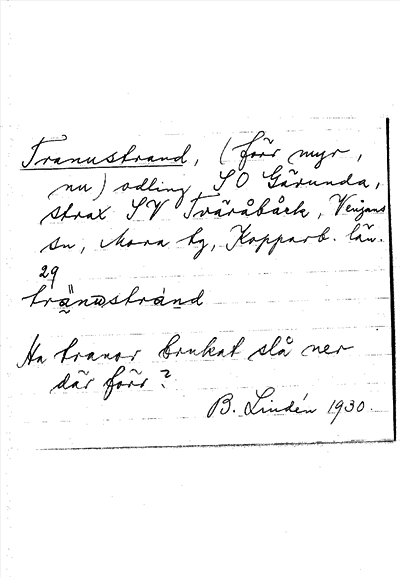 Tranustrand, (förr myr,
nu) odling SO Gärunda,
strax SV Tväråbäck, Venjans
sn, Mora tg, Kopparb. län.
29
tränustránd
Ha tranor brukat slå ner
där förr?
B. Lindén 1930.